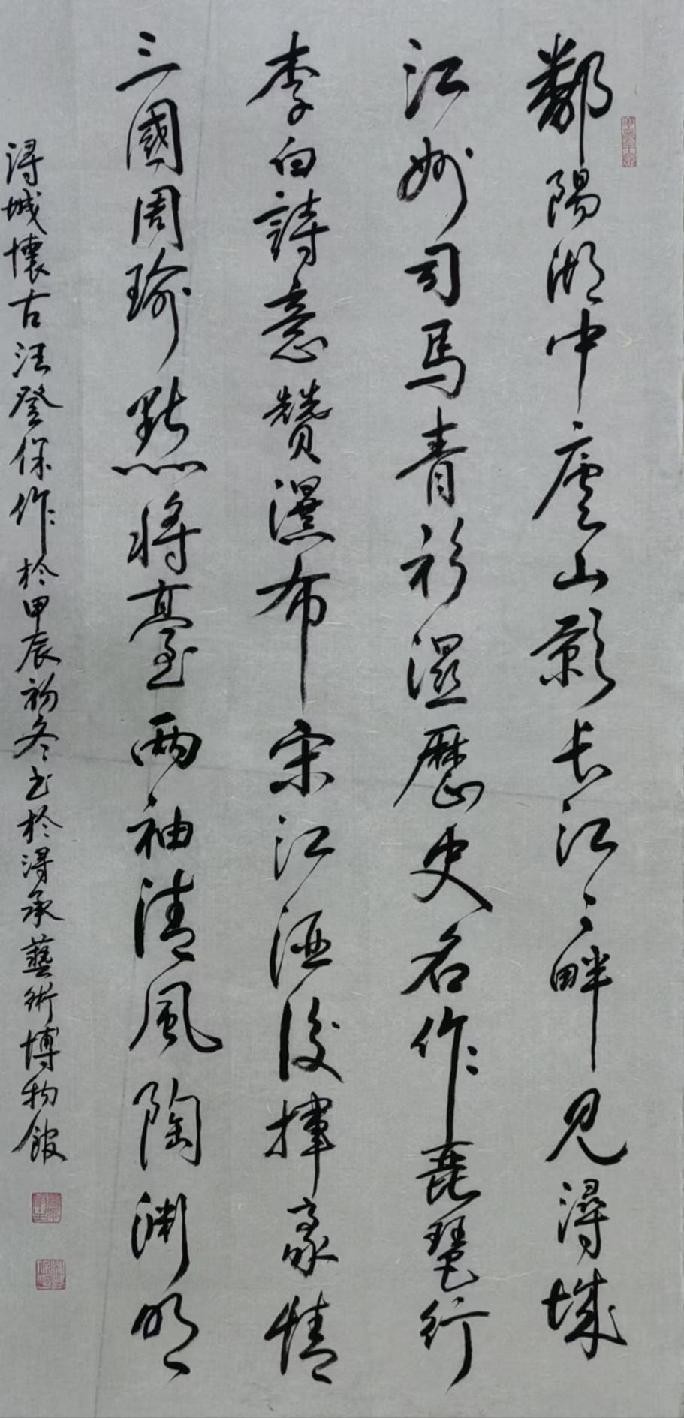 鄱陽湖中廬山影長江々畔見潯城
江州司馬青衫濕歷史名作琵琶行
李白詩意贊瀑布宋江酒後揮豪情
三國周瑜點將臺兩袖清風陶渊明
潯城懷古汪登保作於甲辰初冬書於潯承藝術博物館